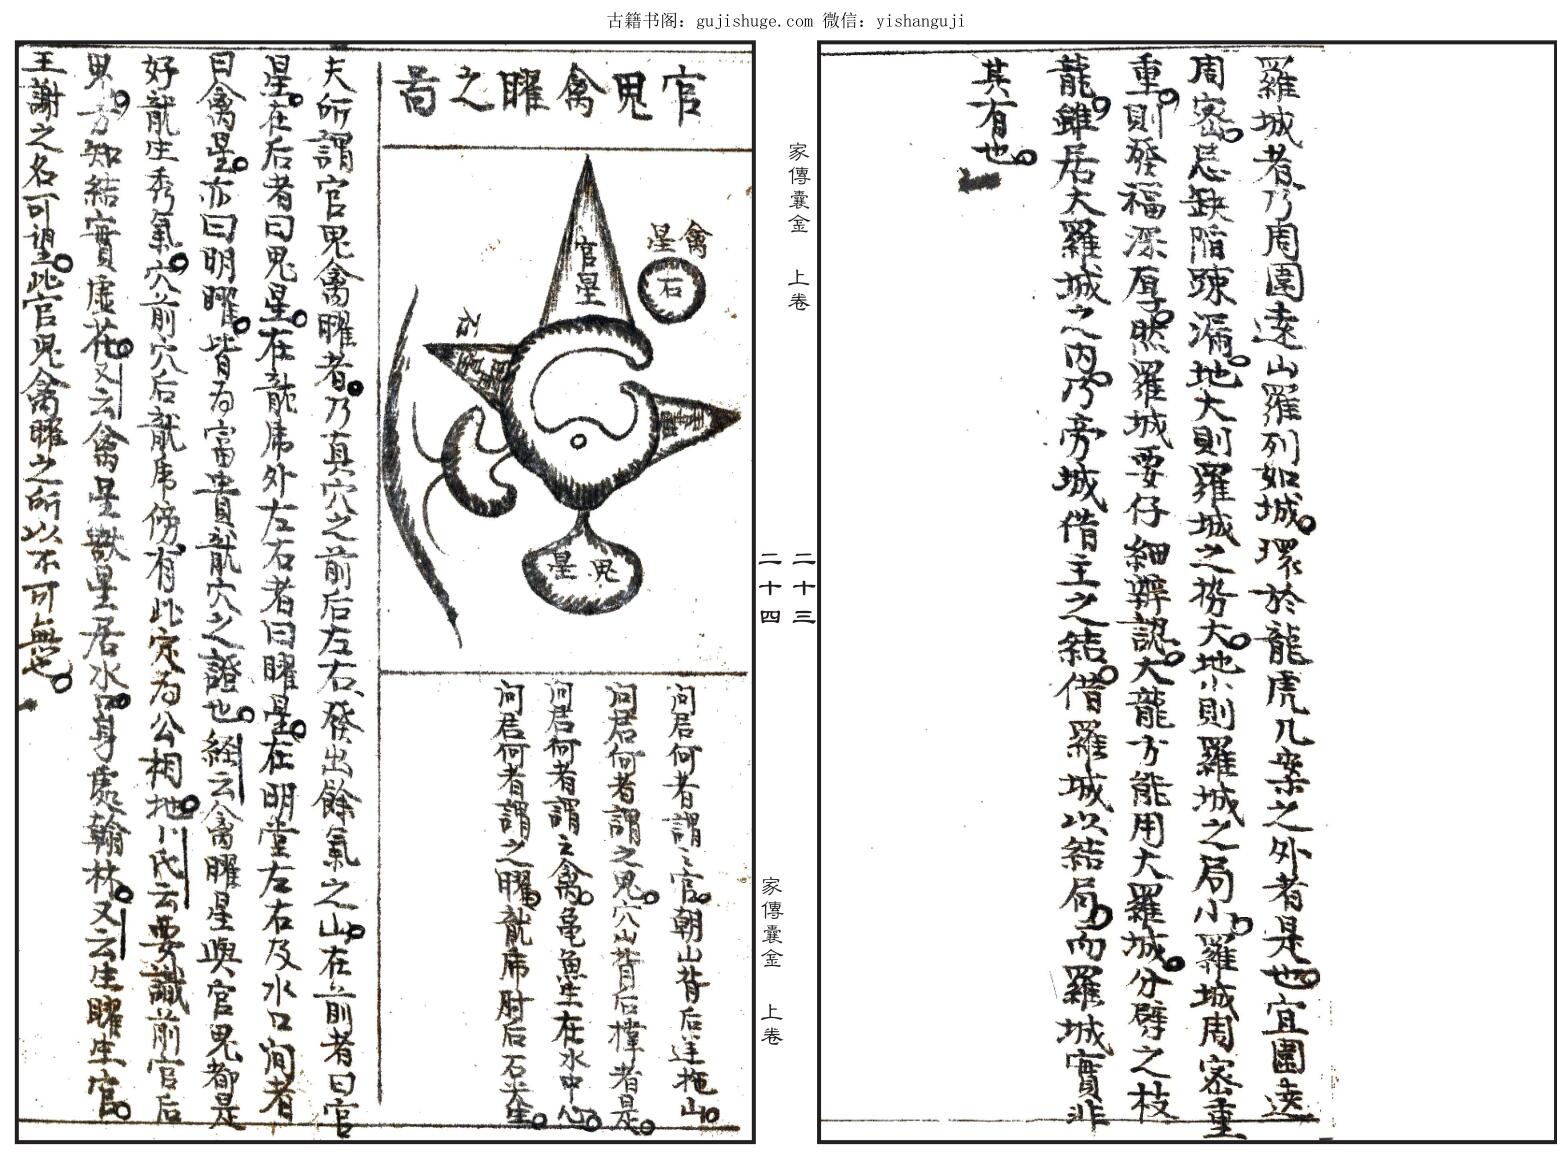 古籍书阁：gujishuge.com 微信：yishanguji
羅城者乃周圍遶山羅列如城環於龍虎几案之外者是也宜圍遶
周密忌缺陷踈漏地大則羅城之勢大地小則羅城之局小羅城周密重
重則發福深厚然羅城要仔細辨認大龍方能用大羅城分劈之枝
龍雖居大羅城之内乃旁城借主之結借羅城以結局而羅城實非
其有也
家傳囊金 上卷
二十三
二十四
家傳囊金 上卷
官鬼禽曜之啚
官星
禽星
石
石
曜星
曜星
鬼星
问君何者謂之官朝山背后逆拖山
问君何者謂之鬼穴山背后撑者是
问君何者謂之禽亀魚生在水中心
问君何者謂之曜龍虎肘后石尖生
夫所謂官鬼禽曜者乃真穴之前后左右發出餘氣之山在前者曰官
星在后者曰鬼星在龍虎外左右者曰曜星在明堂左右及水口间者
曰禽星亦曰明曜皆为富貴龍穴之證也経云禽曜星與官鬼都是
好龍生秀氣穴前穴后龍虎傍有此定为公相地卜氏云要識前官后
鬼方知結實虚花又云禽星獸星居水口身處翰林又云生曜生官
王謝之名可望此官鬼禽曜之所以不可無也